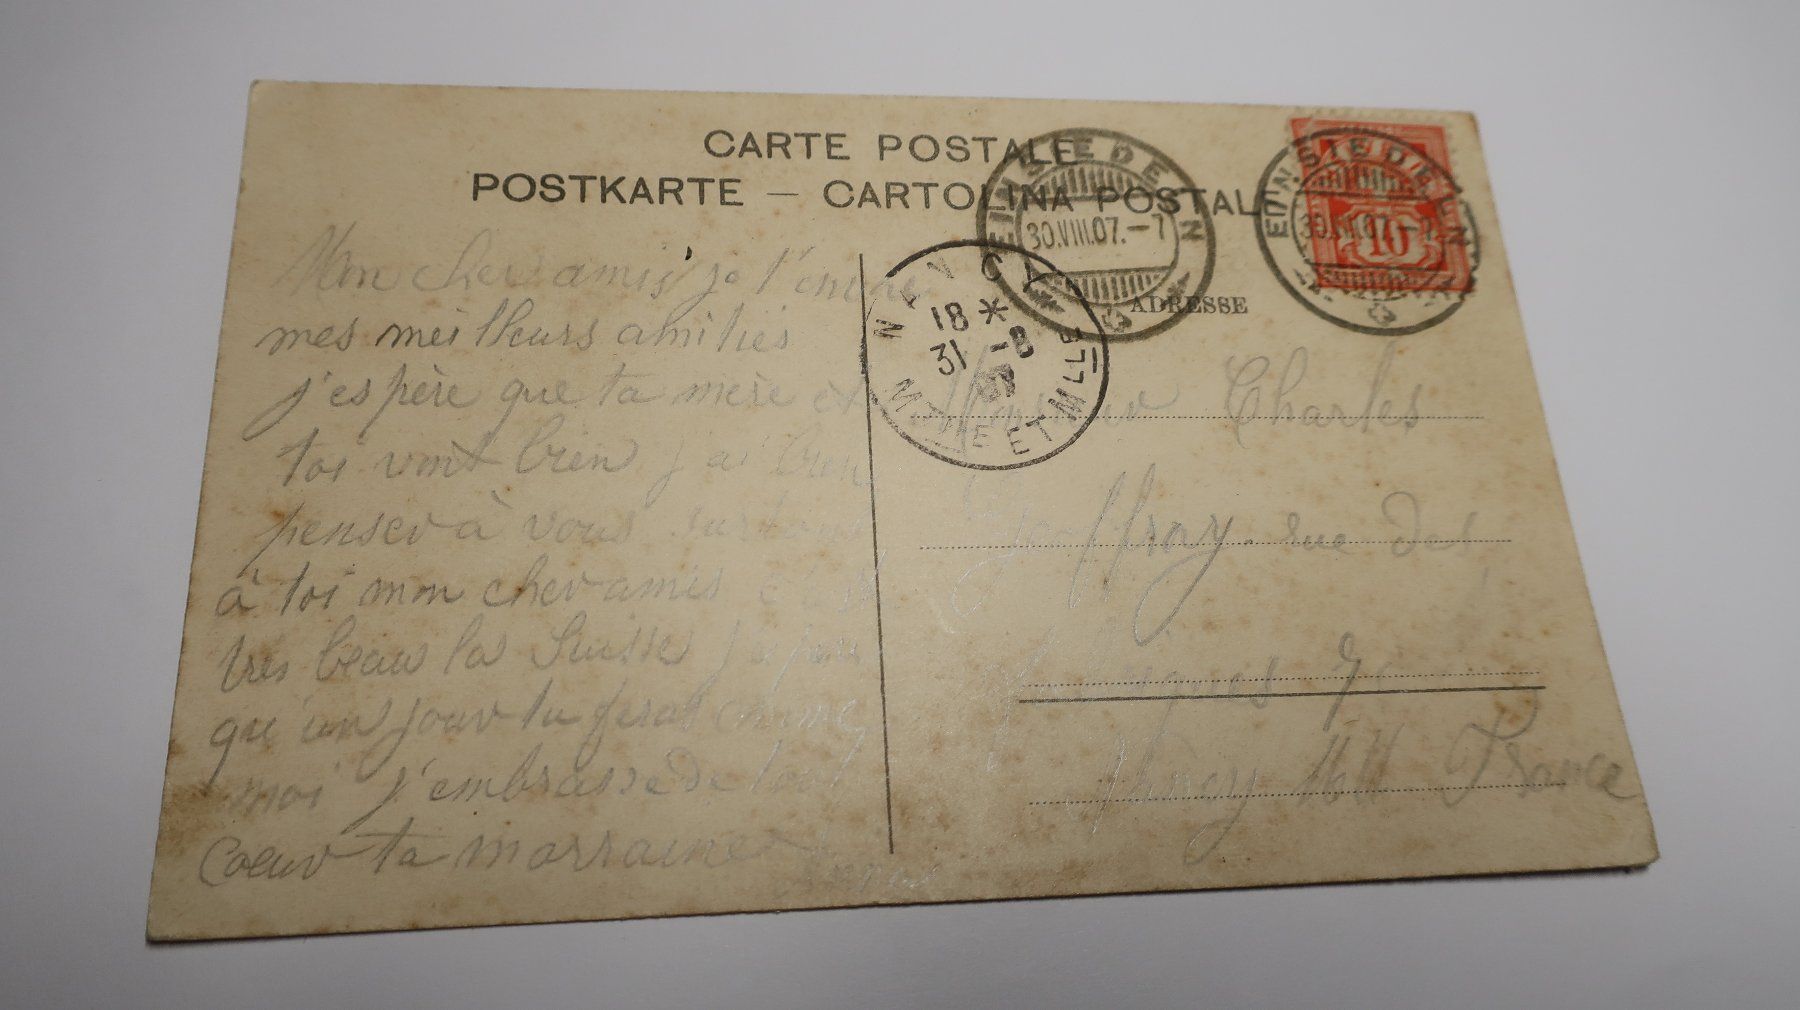 CARTE POSTALE
POSTKARTE — CARTOLINA POSTAL
EINSIEDELN
30.VIII.07.-7
EINSIEDELN
10
NANCY
18 *
31 -8
07
MTHE ET MLLE
ADRESSE
Mon cher amis je t'envoie
mes meilleurs amitiés
j'espère que ta mère et
toi vont bien j'ai bien
penser à vous surtout
à toi mon cher amis c'est
très beau la Suisse j'espère
qu'un jour tu feras comme
moi j'embrasse de tout
coeur ta marraine
Monsieur Charles
Geoffroy. rue des
Nancy M M France